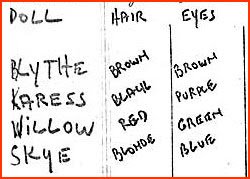 DOLL HAIR EYES
BLYTHE BROWN BROWN
KARESS BLACK PURPLE
WILLOW RED GREEN
SKYE BLONDE BLUE